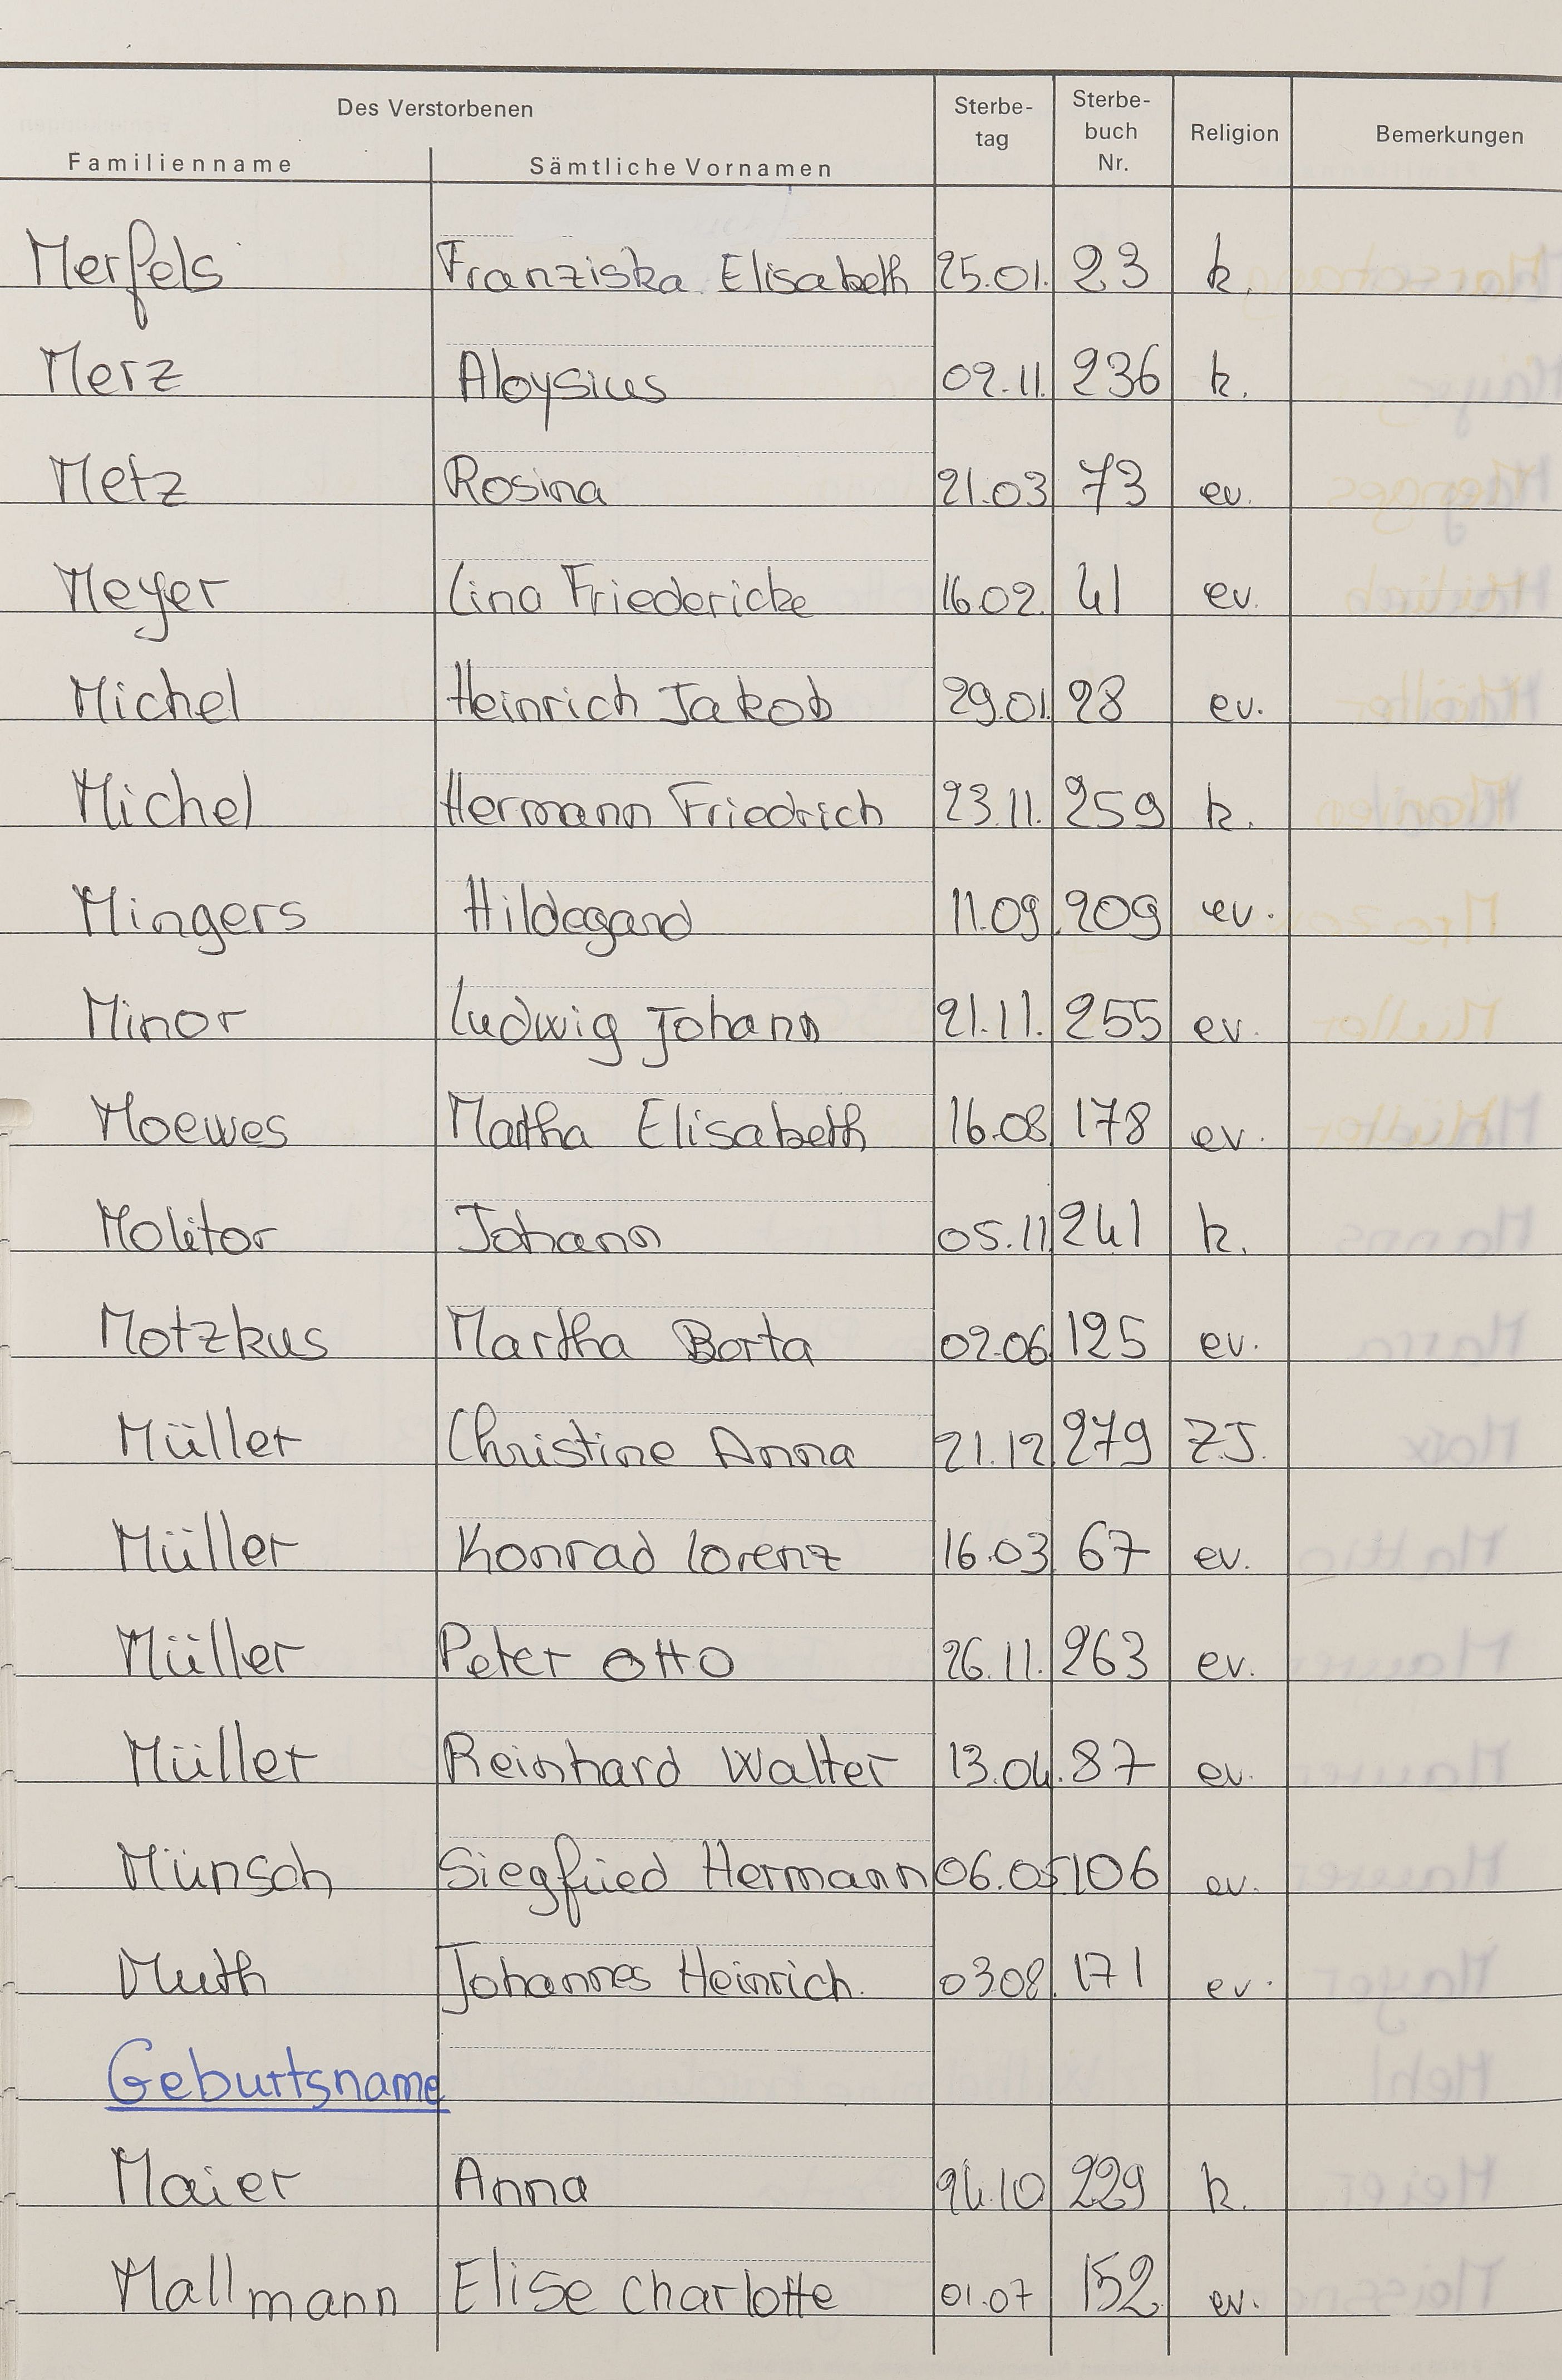 Des Verstorbenen
Familienname Sämtliche Vornamen Sterbe-tag Sterbe-buch Nr. Religion Bemerkungen
Merfels Franziska Elisabeth 25.01. 23 k.
Merz Aloysius 02.11. 236 k.
Metz Rosina 21.03 73 ev.
Meyer Lina Friedericke 16.02. 41 ev.
Michel Heinrich Jakob 29.01. 28 ev.
Michel Hermann Friedrich 23.11. 259 k.
Mingers Hildegard 11.09. 209 ev.
Minor Ludwig Johann 21.11. 255 ev.
Moewes Martha Elisabeth 16.08. 178 ev.
Molitor Johann 05.11 241 k.
Motzkus Martha Berta 02.06. 125 ev.
Müller Christine Anna 21.12. 279 Z.J.
Müller Konrad Lorenz 16.03 67 ev.
Müller Peter Otto 26.11. 263 ev.
Müller Reinhard Walter 13.04. 87 ev.
Münsch Siegfried Hermann 06.05 106 ev.
Muth Johannes Heinrich. 03.08. 171 ev.
Geburtsname
Maier Anna 24.10 229 k.
Mallmann Elise Charlotte 01.07 152 ev.